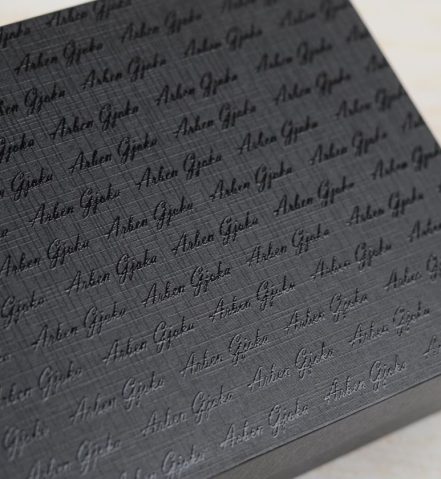 Gjoka Arben Gjoka
Arben Gjoka Arben Gjoka
Arben Gjoka Arben Gjoka Arben Gjoka
Gjoka Arben Gjoka Arben Gjoka Arben Gjoka
Gjoka Arben Gjoka Arben Gjoka Arben Gjoka Arben Gjoka
Gjoka Arben Gjoka Arben Gjoka Arben Gjoka Arben Gjoka
Arben Gjoka Arben Gjoka Arben Gjoka Arben Gjoka Arben
Arben Gjoka Arben Gjoka Arben Gjoka Arben Gjoka Arben
Gjoka Arben Gjoka Arben Gjoka Arben Gjoka Arben Gjoka
Gjoka Arben Gjoka Arben Gjoka Arben Gjoka Arben Gjoka
Arben Gjoka Arben Gjoka Arben Gjoka Arben Gjoka
Gjoka Arben Gjoka Arben Gjoka Arben Gjoka Arben Gjoka
Arben Gjoka Arben Gjoka Arben Gjoka Arben Gjoka